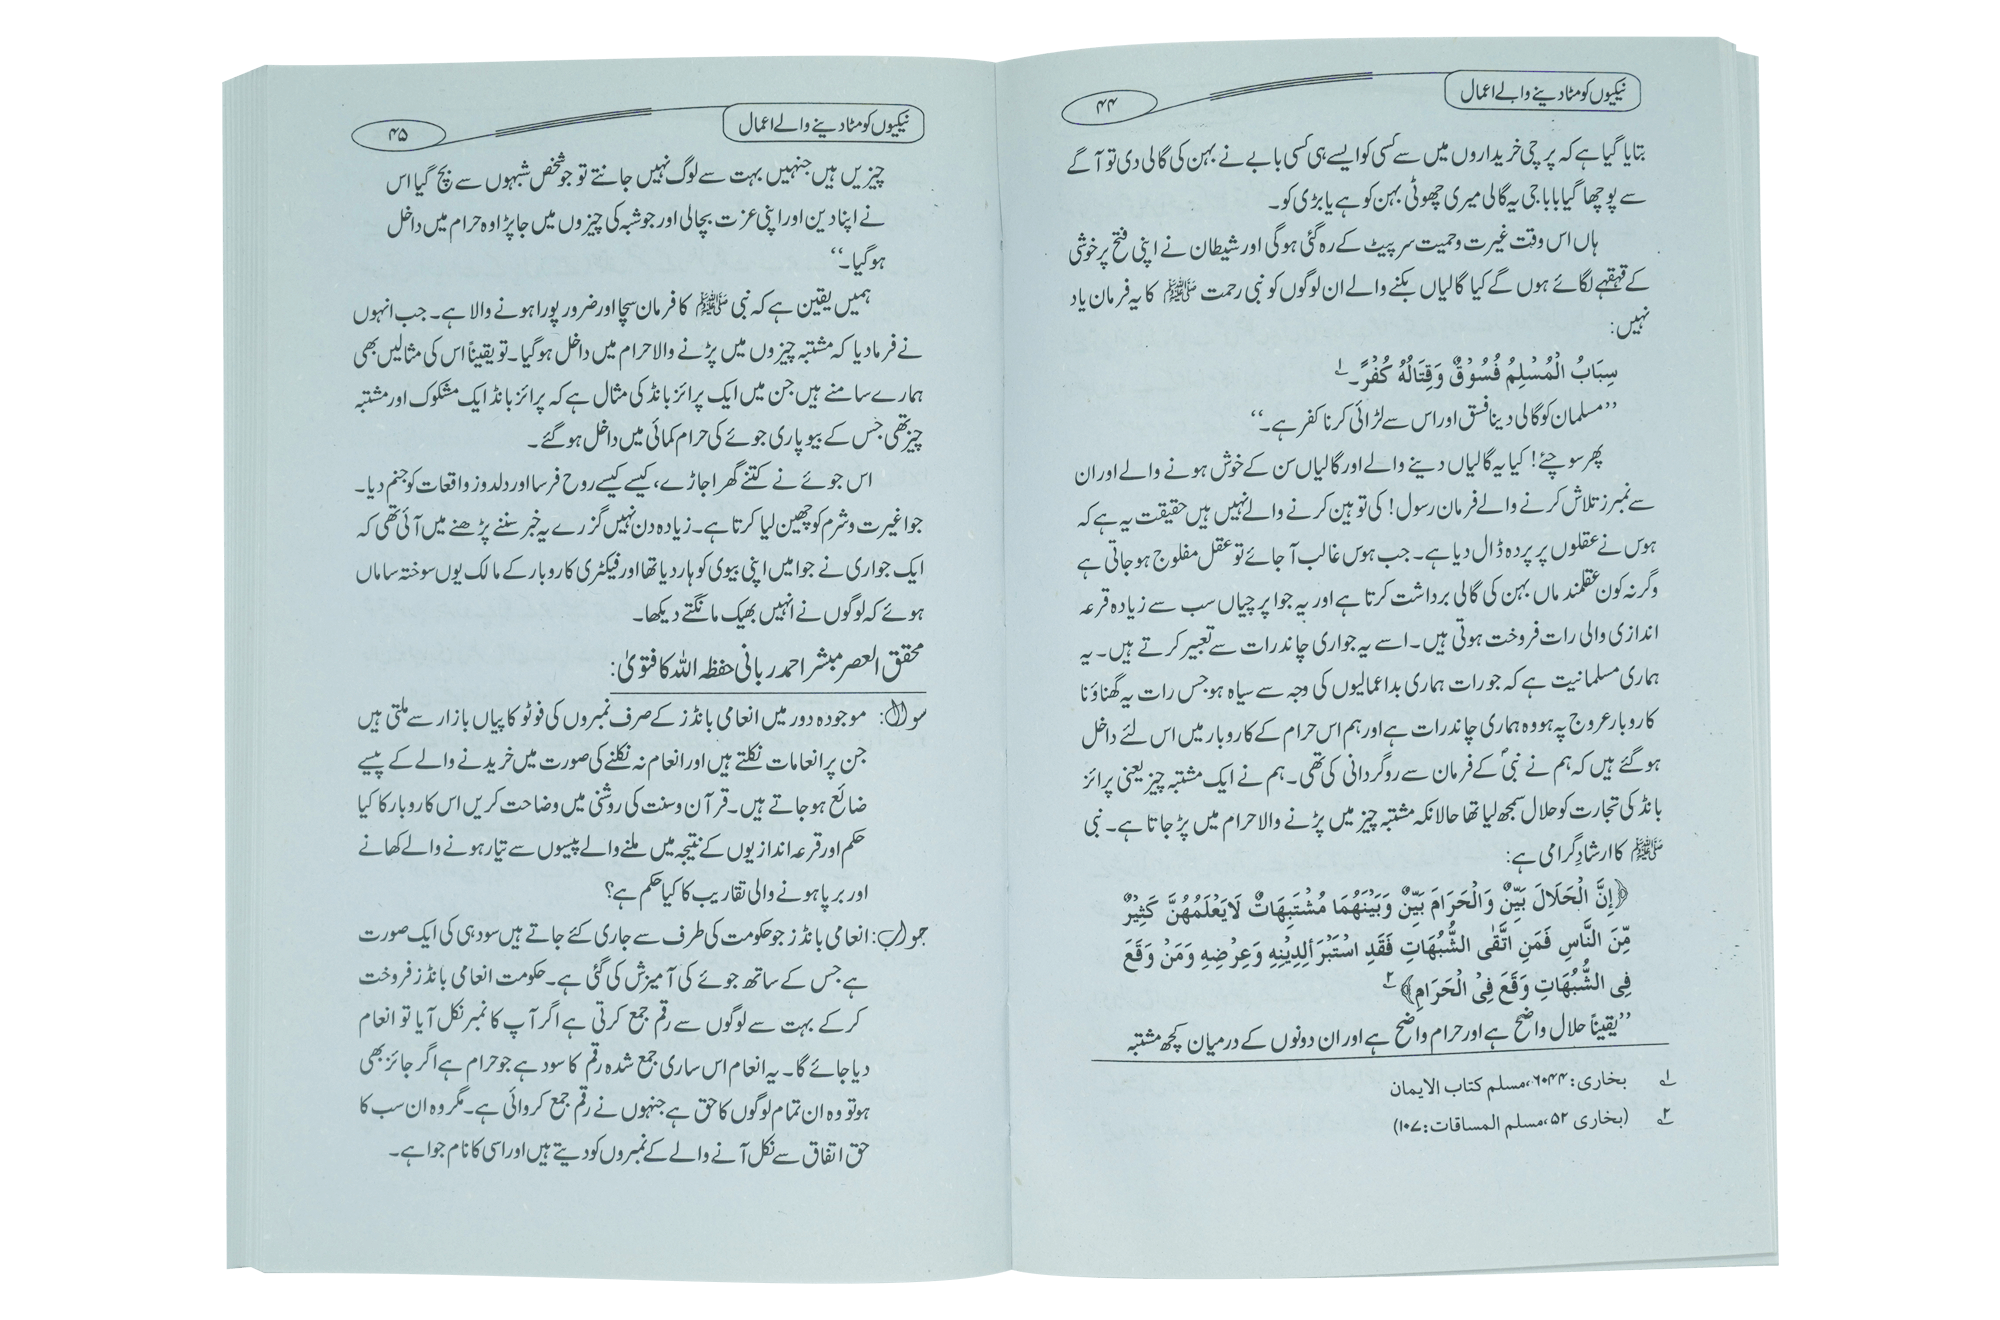 نیکیوں کو مٹا دینے والے اعمال
۴۴
بتایا گیا ہے کہ پرچی خریداروں میں سے کسی کو ایسے ہی کسی بابے نے بہن کی گالی دی تو آگے
سے پوچھا گیا بابا جی یہ گالی میری چھوٹی بہن کو ہے یا بڑی کو۔
ہاں اس وقت غیرت و حمیت سر پیٹ کے رہ گئی ہو گی اور شیطان نے اپنی فتح پر خوشی
کے قہقہے لگائے ہوں گے کیا گالیاں بکنے والے ان لوگوں کو نبی رحمت ﷺ کا یہ فرمان یاد
نہیں:
سِبَابُ الْمُسْلِمِ فُسُوْقٌ وَقِتَالُهُ كُفْرٌ۔ ۱
’’مسلمان کو گالی دینا فسق اور اس سے لڑائی کرنا کفر ہے۔‘‘
پھر سوچئے! کیا یہ گالیاں دینے والے اور گالیاں سن کے خوش ہونے والے اور ان
سے نمبرز تلاش کرنے والے فرمان رسول! کی توہین کرنے والے نہیں ہیں حقیقت یہ ہے کہ
ہوس نے عقلوں پر پردہ ڈال دیا ہے۔ جب ہوس غالب آ جائے تو عقل مفلوج ہو جاتی ہے
وگرنہ کون عقلمند ماں بہن کی گالی برداشت کرتا ہے اور یہ جوا پرچیاں سب سے زیادہ قرعہ
اندازی والی رات فروخت ہوتی ہیں۔ اسے یہ جواری چاند رات سے تعبیر کرتے ہیں۔ یہ
ہماری مسلمانیت ہے کہ جو رات ہماری بداعمالیوں کی وجہ سے سیاہ ہو جس رات یہ گھناؤنا
کاروبار عروج پہ ہو وہ ہماری چاند رات ہے اور ہم اس حرام کے کاروبار میں اس لئے داخل
ہو گئے ہیں کہ ہم نے نبیؐ کے فرمان سے روگردانی کی تھی۔ ہم نے ایک مشتبہ چیز یعنی پرائز
بانڈ کی تجارت کو حلال سمجھ لیا تھا حالانکہ مشتبہ چیز میں پڑنے والا حرام میں پڑ جاتا ہے۔ نبی
ﷺ کا ارشادِ گرامی ہے:
﴿إِنَّ الْحَلَالَ بَيِّنٌ وَالْحَرَامَ بَيِّنٌ وَبَيْنَهُمَا مُشْتَبِهَاتٌ لَا يَعْلَمُهُنَّ كَثِيْرٌ
مِّنَ النَّاسِ فَمَنِ اتَّقَى الشُّبُهَاتِ فَقَدِ اسْتَبْرَأَ لِدِيْنِهِ وَعِرْضِهِ وَمَنْ وَقَعَ
فِى الشُّبُهَاتِ وَقَعَ فِى الْحَرَامِ﴾ ۲
’’یقیناً حلال واضح ہے اور حرام واضح ہے اور ان دونوں کے درمیان کچھ مشتبہ
۱ بخاری: ۶۰۴۴، مسلم کتاب الایمان
۲ (بخاری ۵۲، مسلم المساقات: ۱۰۷)
نیکیوں کو مٹا دینے والے اعمال
۴۵
چیزیں ہیں جنہیں بہت سے لوگ نہیں جانتے تو جو شخص شبہوں سے بچ گیا اس
نے اپنا دین اور اپنی عزت بچا لی اور جو شبہ کی چیزوں میں جا پڑا وہ حرام میں داخل
ہو گیا۔‘‘
ہمیں یقین ہے کہ نبی ﷺ کا فرمان سچا اور ضرور پورا ہونے والا ہے۔ جب انہوں
نے فرما دیا کہ مشتبہ چیزوں میں پڑنے والا حرام میں داخل ہو گیا۔ تو یقیناً اس کی مثالیں بھی
ہمارے سامنے ہیں جن میں ایک پرائز بانڈ کی مثال ہے کہ پرائز بانڈ ایک مشکوک اور مشتبہ
چیز تھی جس کے بیوپاری جوئے کی حرام کمائی میں داخل ہو گئے۔
اس جوئے نے کتنے گھر اجاڑے، کیسے کیسے روح فرسا اور دلدوز واقعات کو جنم دیا۔
جوا غیرت و شرم کو چھین لیا کرتا ہے۔ زیادہ دن نہیں گزرے یہ خبر سننے پڑھنے میں آئی تھی کہ
ایک جواری نے جوا میں اپنی بیوی کو ہار دیا تھا اور فیکٹری کاروبار کے مالک یوں سوختہ ساماں
ہوئے کہ لوگوں نے انہیں بھیک مانگتے دیکھا۔
محقق العصر مبشر احمد ربانی حفظہ اللہ کا فتویٰ:
سوال: موجودہ دور میں انعامی بانڈز کے صرف نمبروں کی فوٹو کاپیاں بازار سے ملتی ہیں
جن پر انعامات نکلتے ہیں اور انعام نہ نکلنے کی صورت میں خریدنے والے کے پیسے
ضائع ہو جاتے ہیں۔ قرآن و سنت کی روشنی میں وضاحت کریں اس کاروبار کا کیا
حکم اور قرعہ اندازیوں کے نتیجہ میں ملنے والے پیسوں سے تیار ہونے والے کھانے
اور برپا ہونے والی تقاریب کا کیا حکم ہے؟
جواب: انعامی بانڈز جو حکومت کی طرف سے جاری کئے جاتے ہیں سود ہی کی ایک صورت
ہے جس کے ساتھ جوئے کی آمیزش کی گئی ہے۔ حکومت انعامی بانڈز فروخت
کر کے بہت سے لوگوں سے رقم جمع کرتی ہے اگر آپ کا نمبر نکل آیا تو انعام
دیا جائے گا۔ یہ انعام اس ساری جمع شدہ رقم کا سود ہے جو حرام ہے اگر جائز بھی
ہو تو وہ ان تمام لوگوں کا حق ہے جنہوں نے رقم جمع کروائی ہے۔ مگر وہ ان سب کا
حق اتفاق سے نکل آنے والے کے نمبروں کو دیتے ہیں اور اسی کا نام جوا ہے۔